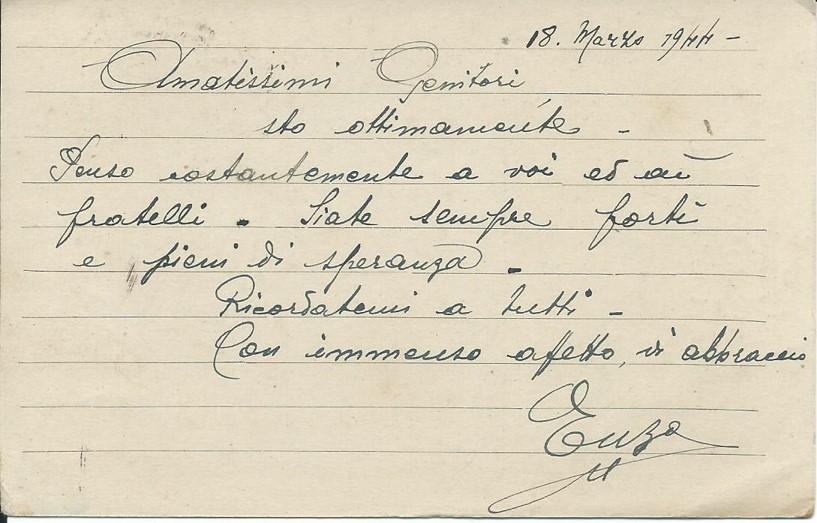 18. Marzo 1944 -
Amatissimi Genitori
sto ottimamente -
Penso costantemente a voi ed ai
fratelli. Siate sempre forti
e pieni di speranza.
Ricordatemi a tutti -
Con immenso affetto, vi abbraccio
Enzo